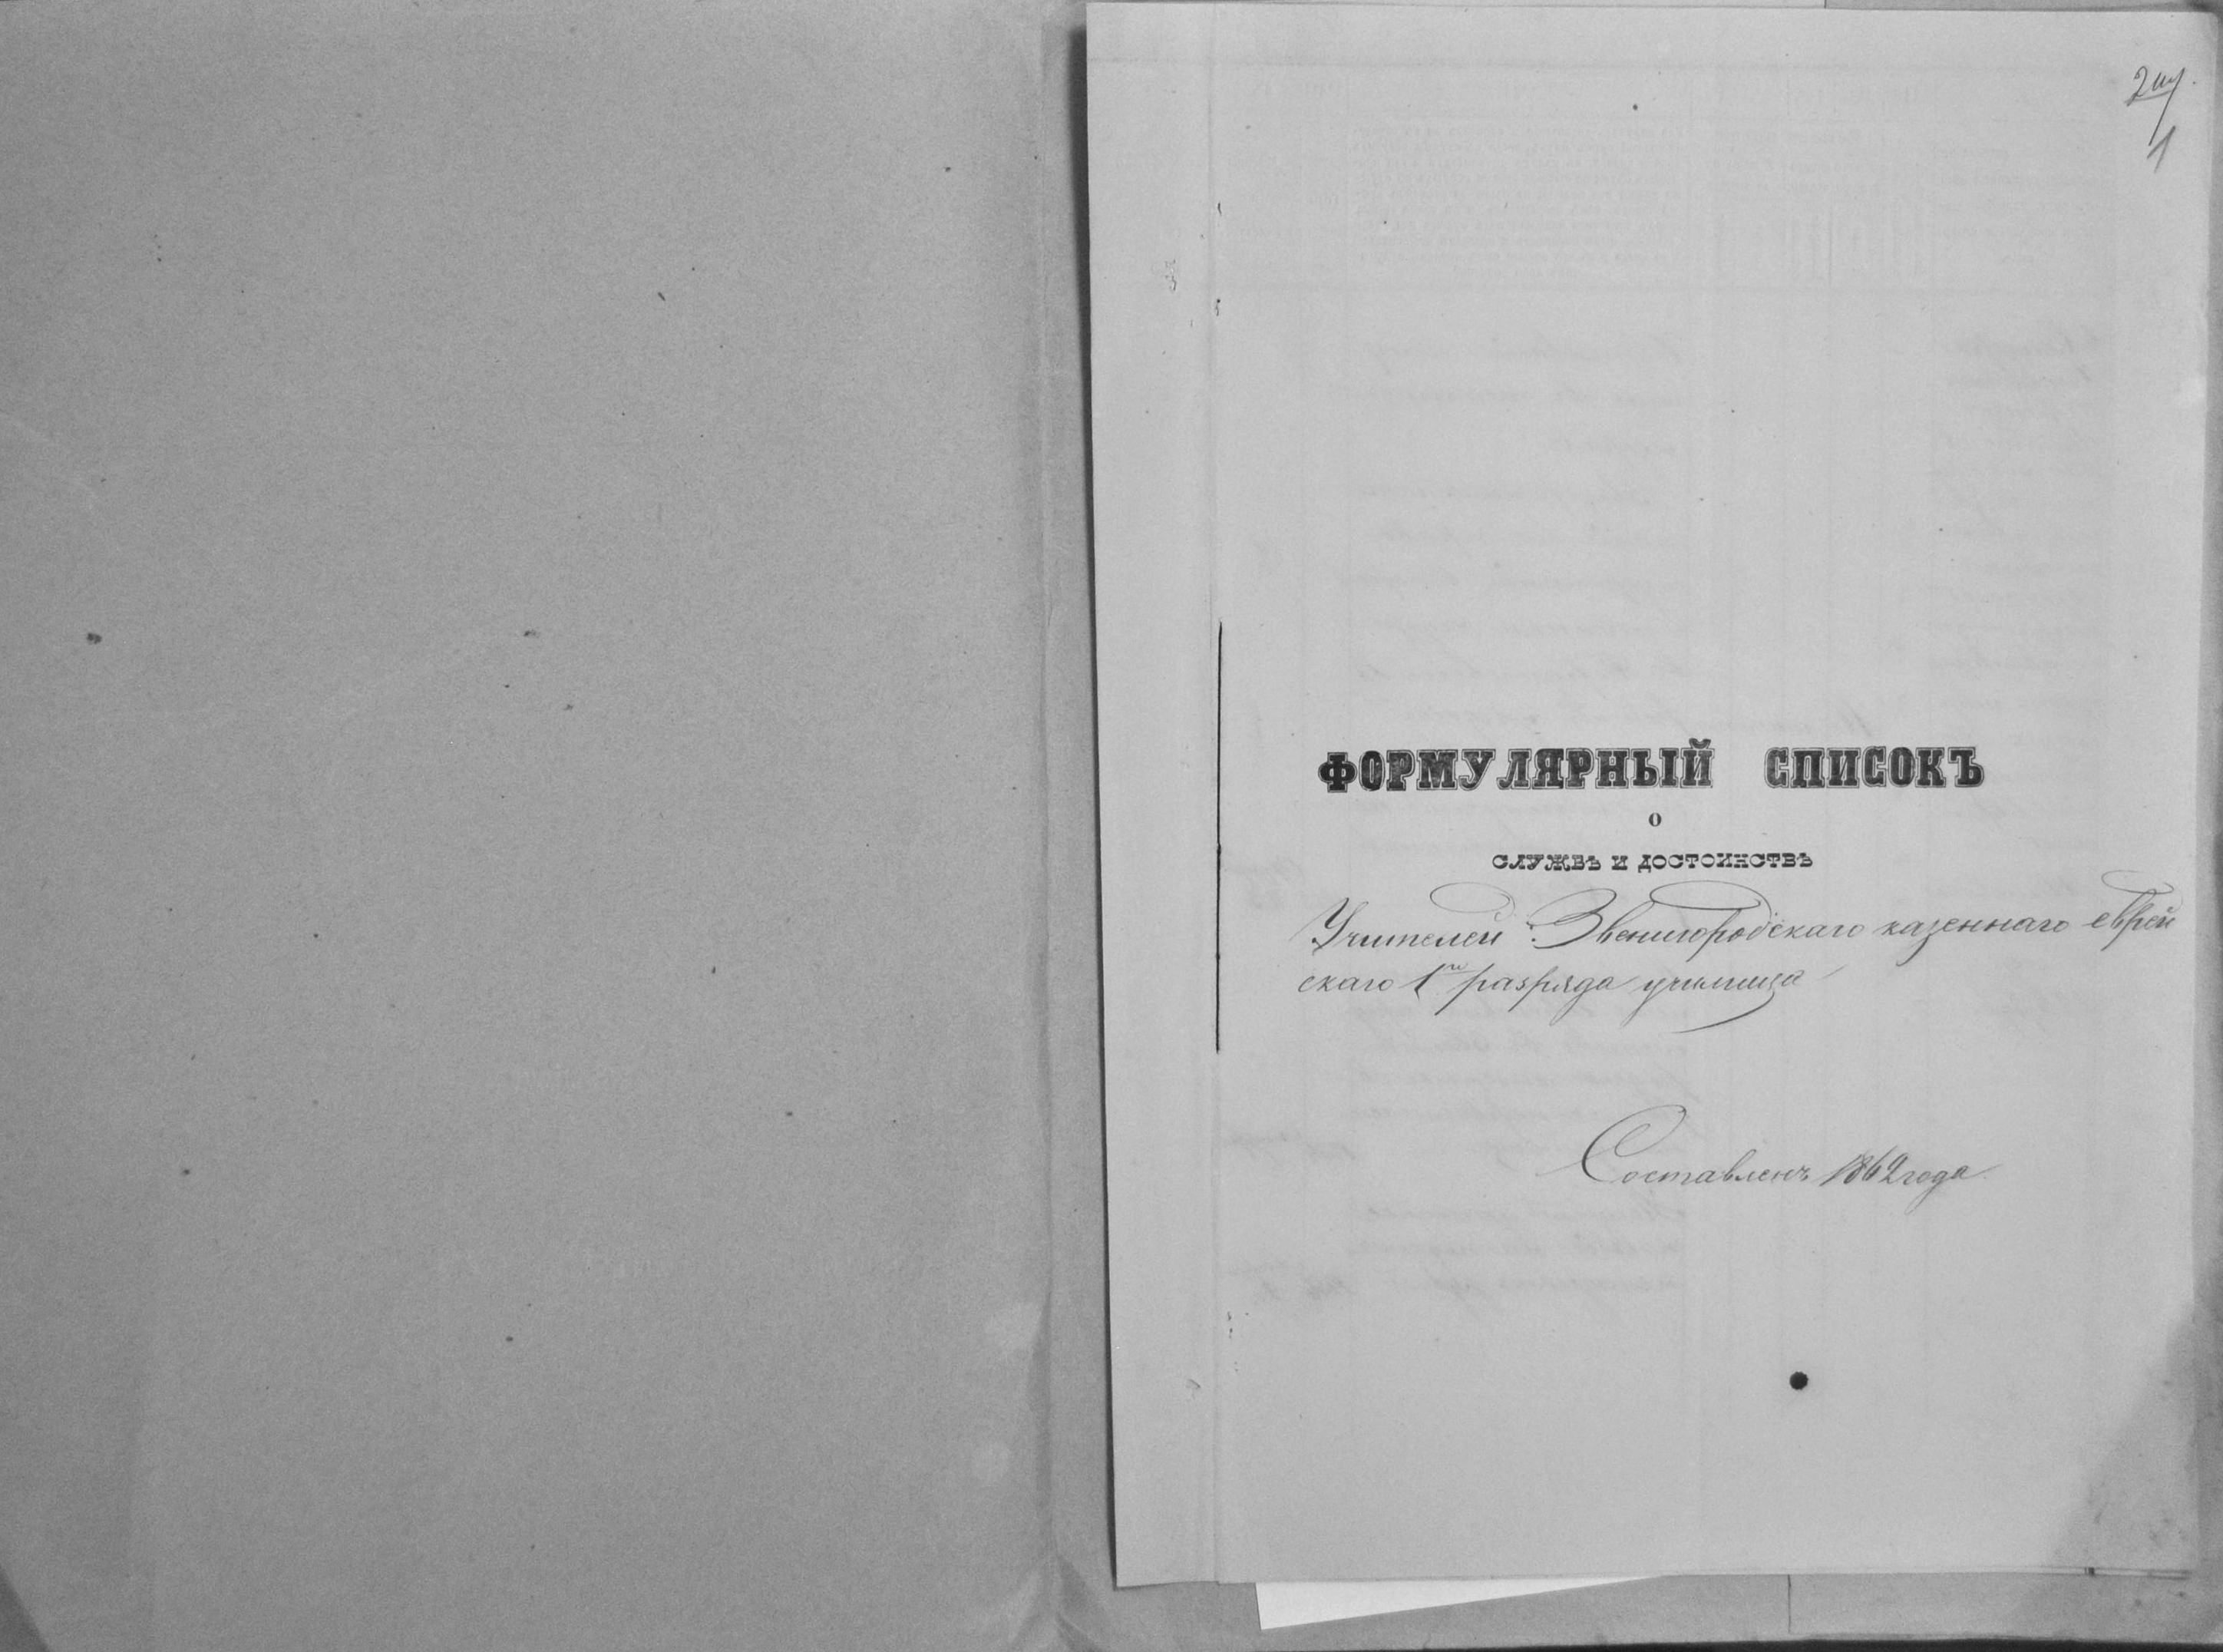 1
ФОРМУЛЯРНЫЙ СПИСОКЪ
О
СЛУЖБѢ И ДОСТОИНСТВѢ
Учителей Звенигородскаго казеннаго еврей
скаго 1го разряда училища
Составленъ 1862 года